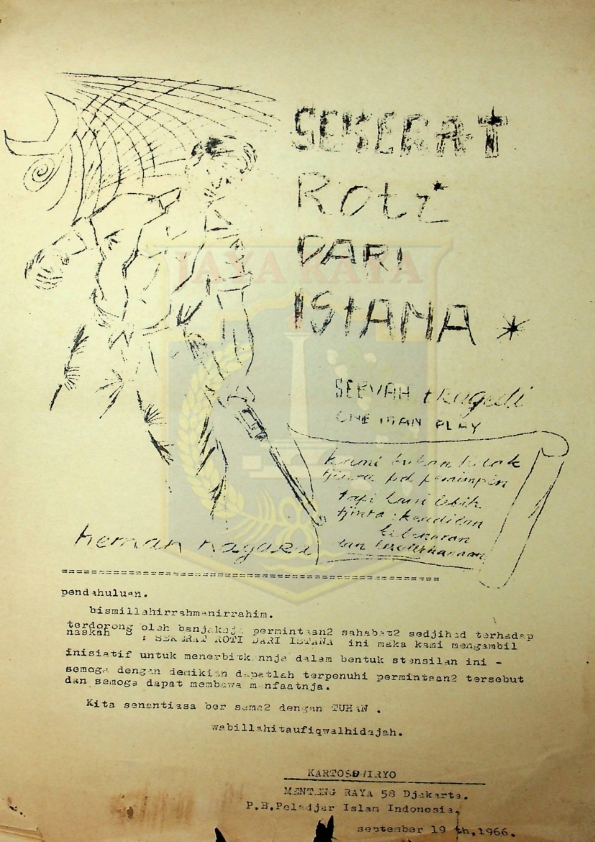 SEKERAT
Roti
DARI
ISTANA *
SEBUAH tragedi
ONE MAN PLAY
JAYA RAYA
kami bukan tidak
tjinta pd pemimpin
tapi kami lebih
tjinta keadilan
kebenaran
dan kesederhanaan
herman nagara
pendahuluan.
bismillahirrahmanirrahim.
terdorong oleh banjaknja permintaan2 sahabat2 sedjihad terhadap
naskah S : SEKERAT ROTI DARI ISTANA ini maka kami mengambil
inisiatif untuk menerbitkannja dalam bentuk stensilan ini -
semoga dengan demikian dapatlah terpenuhi permintaan2 tersebut
dan semoga dapat membawa manfaatnja.
Kita senantiasa ber sama2 dengan TUHAN .
wabillahitaufiqwalhidajah.
KARTOSOWIRYO
MENTENG RAYA 58 Djakarta.
P.B.Peladjar Islam Indonesia.
september 19 th,1966.